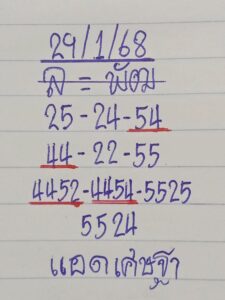 29/1/68
ล = พัดม
25 - 24 - 54
44 - 22 - 55
4452 - 4454 - 5525
5524
แอดเศษฐา